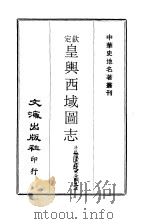 中華史地名著叢刊
欽定
皇輿西域圖志
文海出版社印行